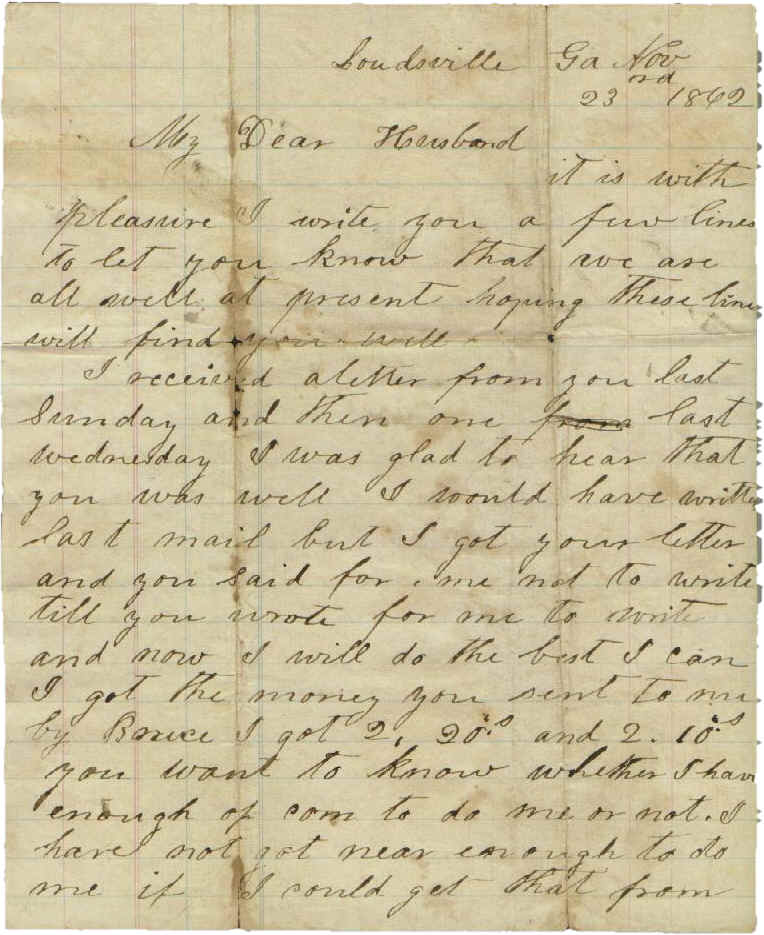 Loudsville Ga Nov
23rd 1862
My Dear Husband
it is with
pleasure I write you a few lines
to let you know that we are
all well at present hoping these lines
will find you well
I received a letter from you last
Sunday and then one from last
wednesday I was glad to hear that
you was well I would have written
last mail but I got your letter
and you said for me not to write
till you wrote for me to write
and now I will do the best I can
I got the money you sent to me
by Bruce I got 2, 20.s and 2. 10.s
you want to know whether I have
enough of corn to do me or not. I
have not got near enough to do
me if I could get that from